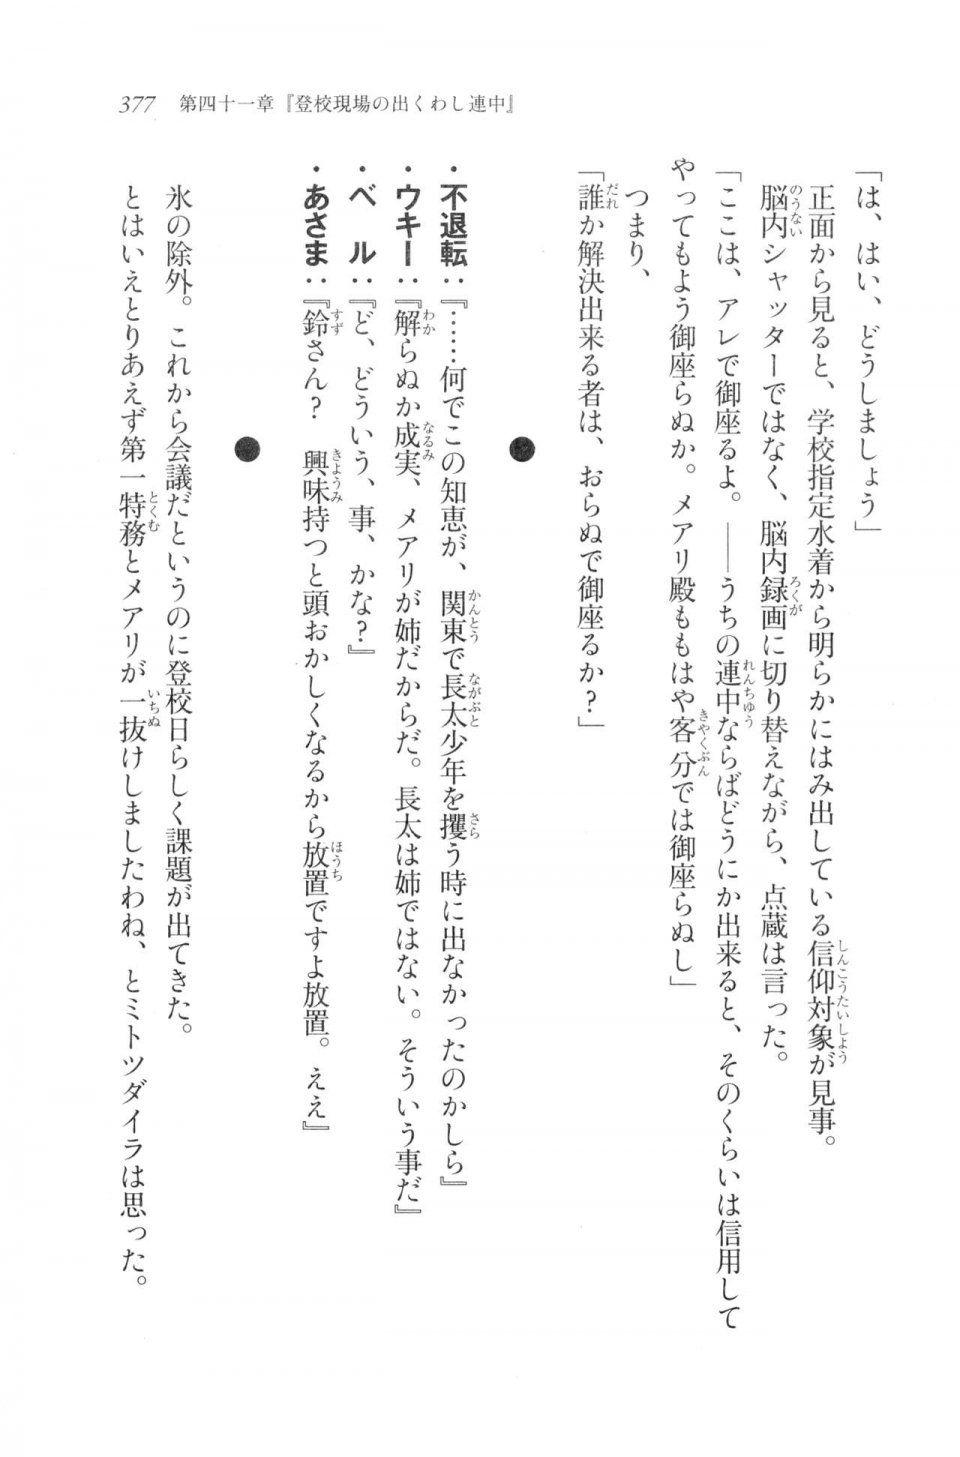 377 第四十一章『登校現場の出くわし連中』
「は、はい、どうしましょう」
正面から見ると、学校指定水着から明らかにはみ出している信仰対象が見事。
脳内シャッターではなく、脳内録画に切り替えながら、点蔵は言った。
「ここは、アレで御座るよ。――うちの連中ならばどうにか出来ると、そのくらいは信用して
やってもよう御座らぬか。メアリ殿ももはや客分では御座らぬし」
つまり、
「誰か解決出来る者は、おらぬで御座るか？」
●
・不退転：『……何でこの知恵が、関東で長太少年を攫う時に出なかったのかしら』
・ウキー：『解らぬか成実、メアリが姉だからだ。長太は姉ではない。そういう事だ』
・ベ　ル：『ど、どういう、事、かな？』
・あさま：『鈴さん？　興味持つと頭おかしくなるから放置ですよ放置。ええ』
●
氷の除外。これから会議だというのに登校日らしく課題が出てきた。
とはいえとりあえず第一特務とメアリが一抜けしましたわね、とミトツダイラは思った。